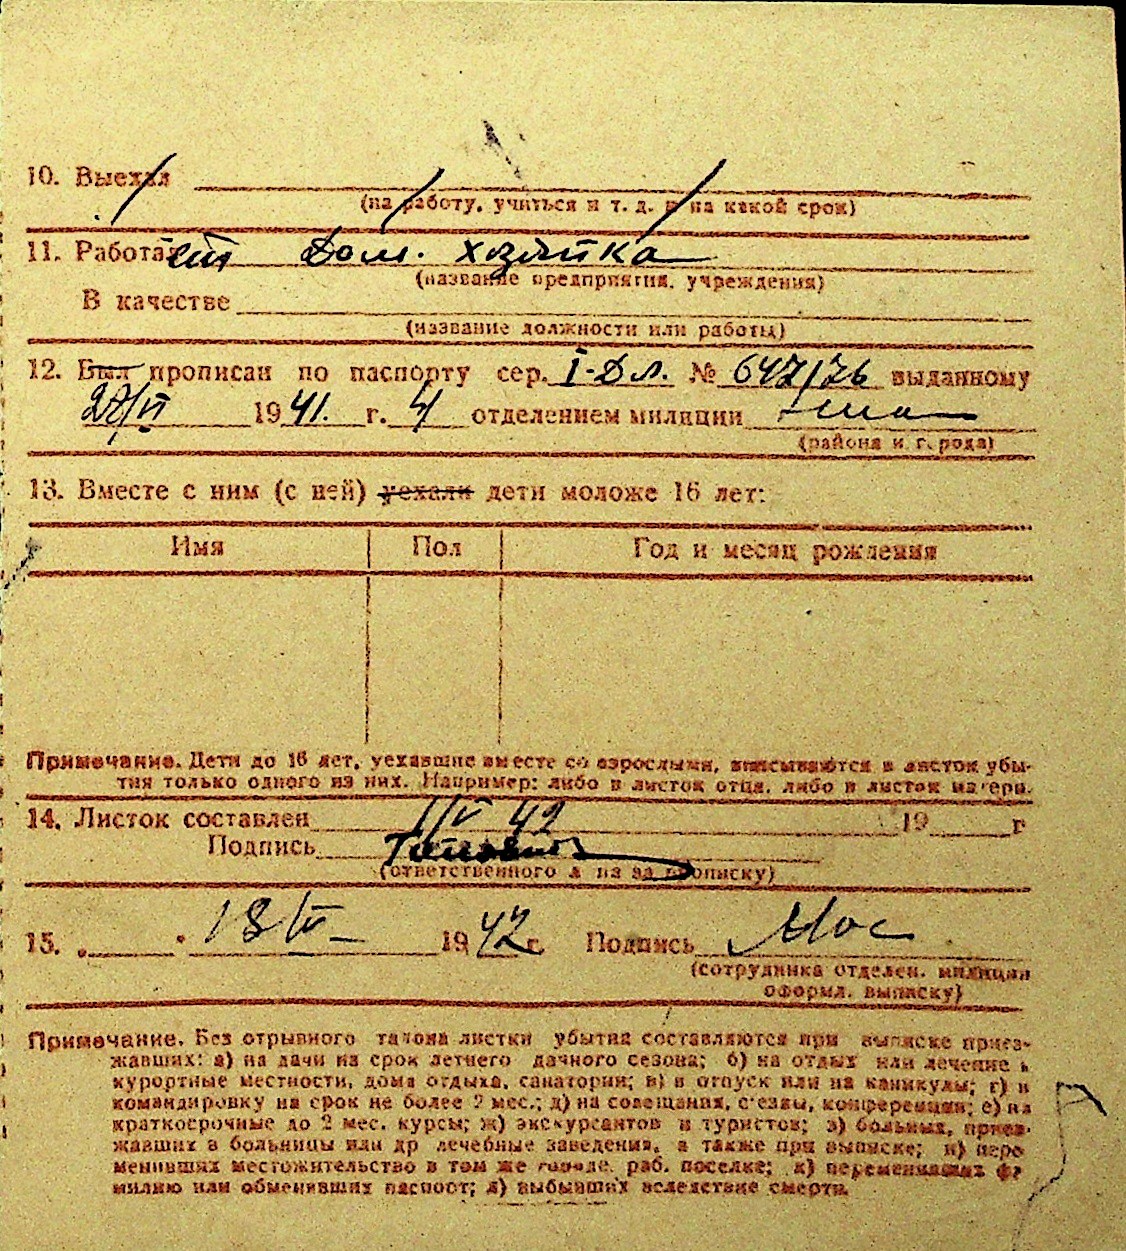 10. Выехал
(на работу, учиться и т. д. и на какой срок)
11. Работает Дом. хозяйка
(название предприятия, учреждения)
В качестве
(название должности или работы)
12. Был прописан по паспорту сер. I-Дл. № 647126 выданному
27/VI 1941. г. 4 отделением милиции
(района и города)
13. Вместе с ним (с ней) уехали дети моложе 16 лет:
Имя Пол Год и месяц рождения
Примечание. Дети до 16 лет, уехавшие вместе со взрослыми, вписываются в листок убы-
тия только одного из них. Например: либо в листок отца, либо в листок матери.
14. Листок составлен 1/IV 42 19 г
Подпись
(ответственного л на за прописку)
15. „ " 18/IV 1942 г. Подпись
(сотрудника отделен. милиции
оформл. выписку)
Примечание. Без отрывного талона листки убытия составляются при выписке приез-
жавших: а) на дачи на срок летнего дачного сезона; б) на отдых или лечение в
курортные местности, дома отдыха, санатории; в) в отпуск или на каникулы; г) в
командировку на срок не более 2 мес.; д) на совещания, съезды, конференции; е) на
краткосрочные до 2 мес. курсы; ж) экскурсантов и туристов; з) больных, приез-
жавших в больницы или др лечебные заведения, а также при выписке; и) пере
менивших местожительство в том же городе, раб. поселке; к) переменивших фа
милию или обменивших паспорт; л) выбывших вследствие смерти.